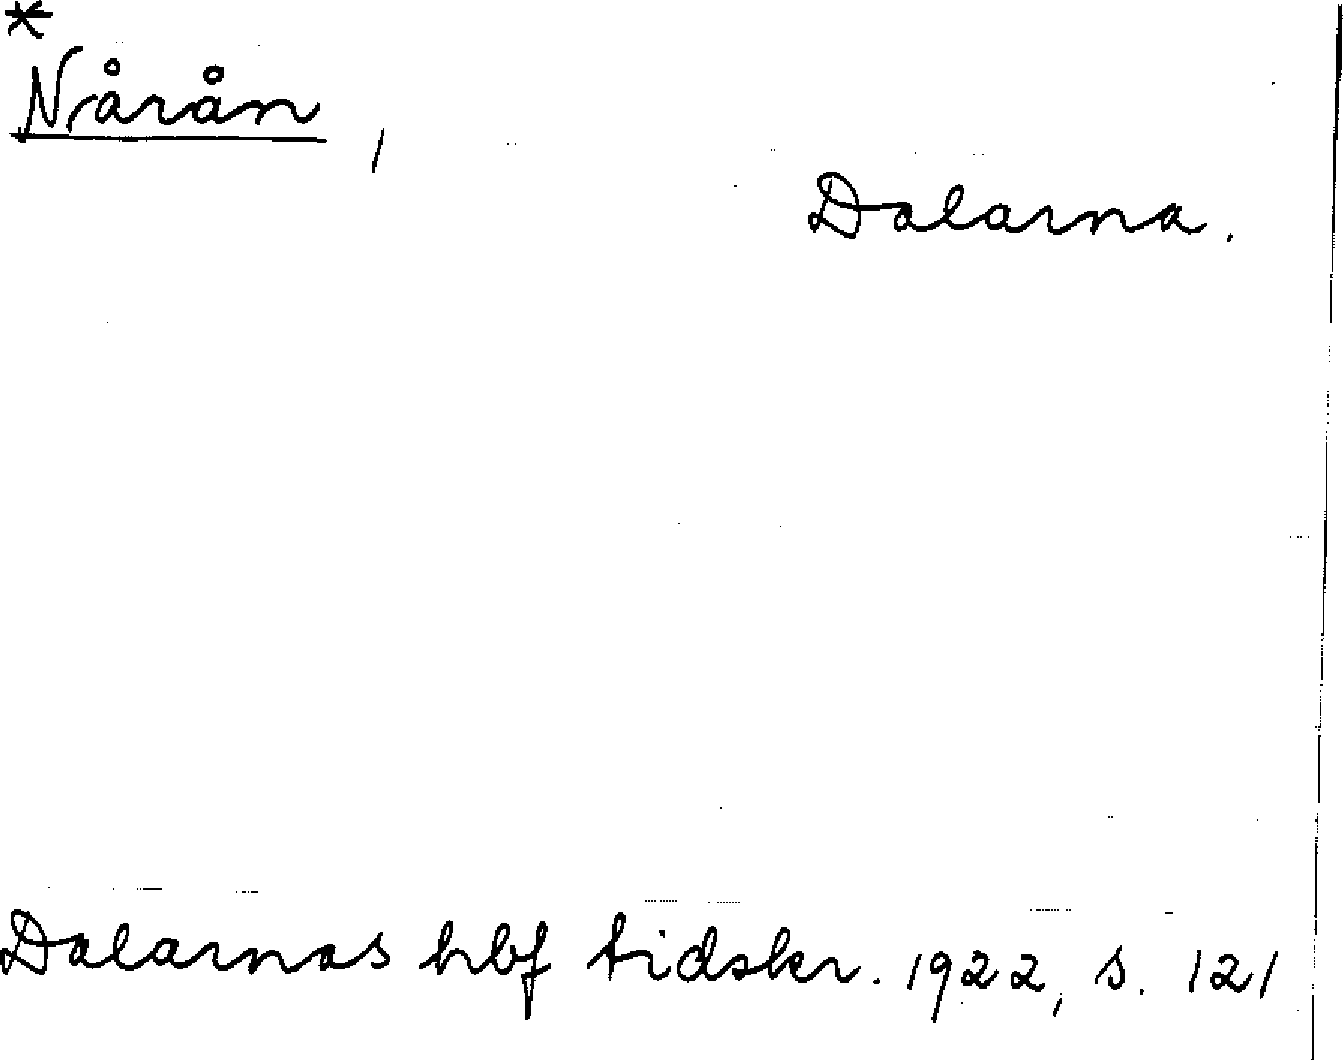 *
Nårån,
Dalarna.
Dalarnas hbf tidskr. 1922, s. 121